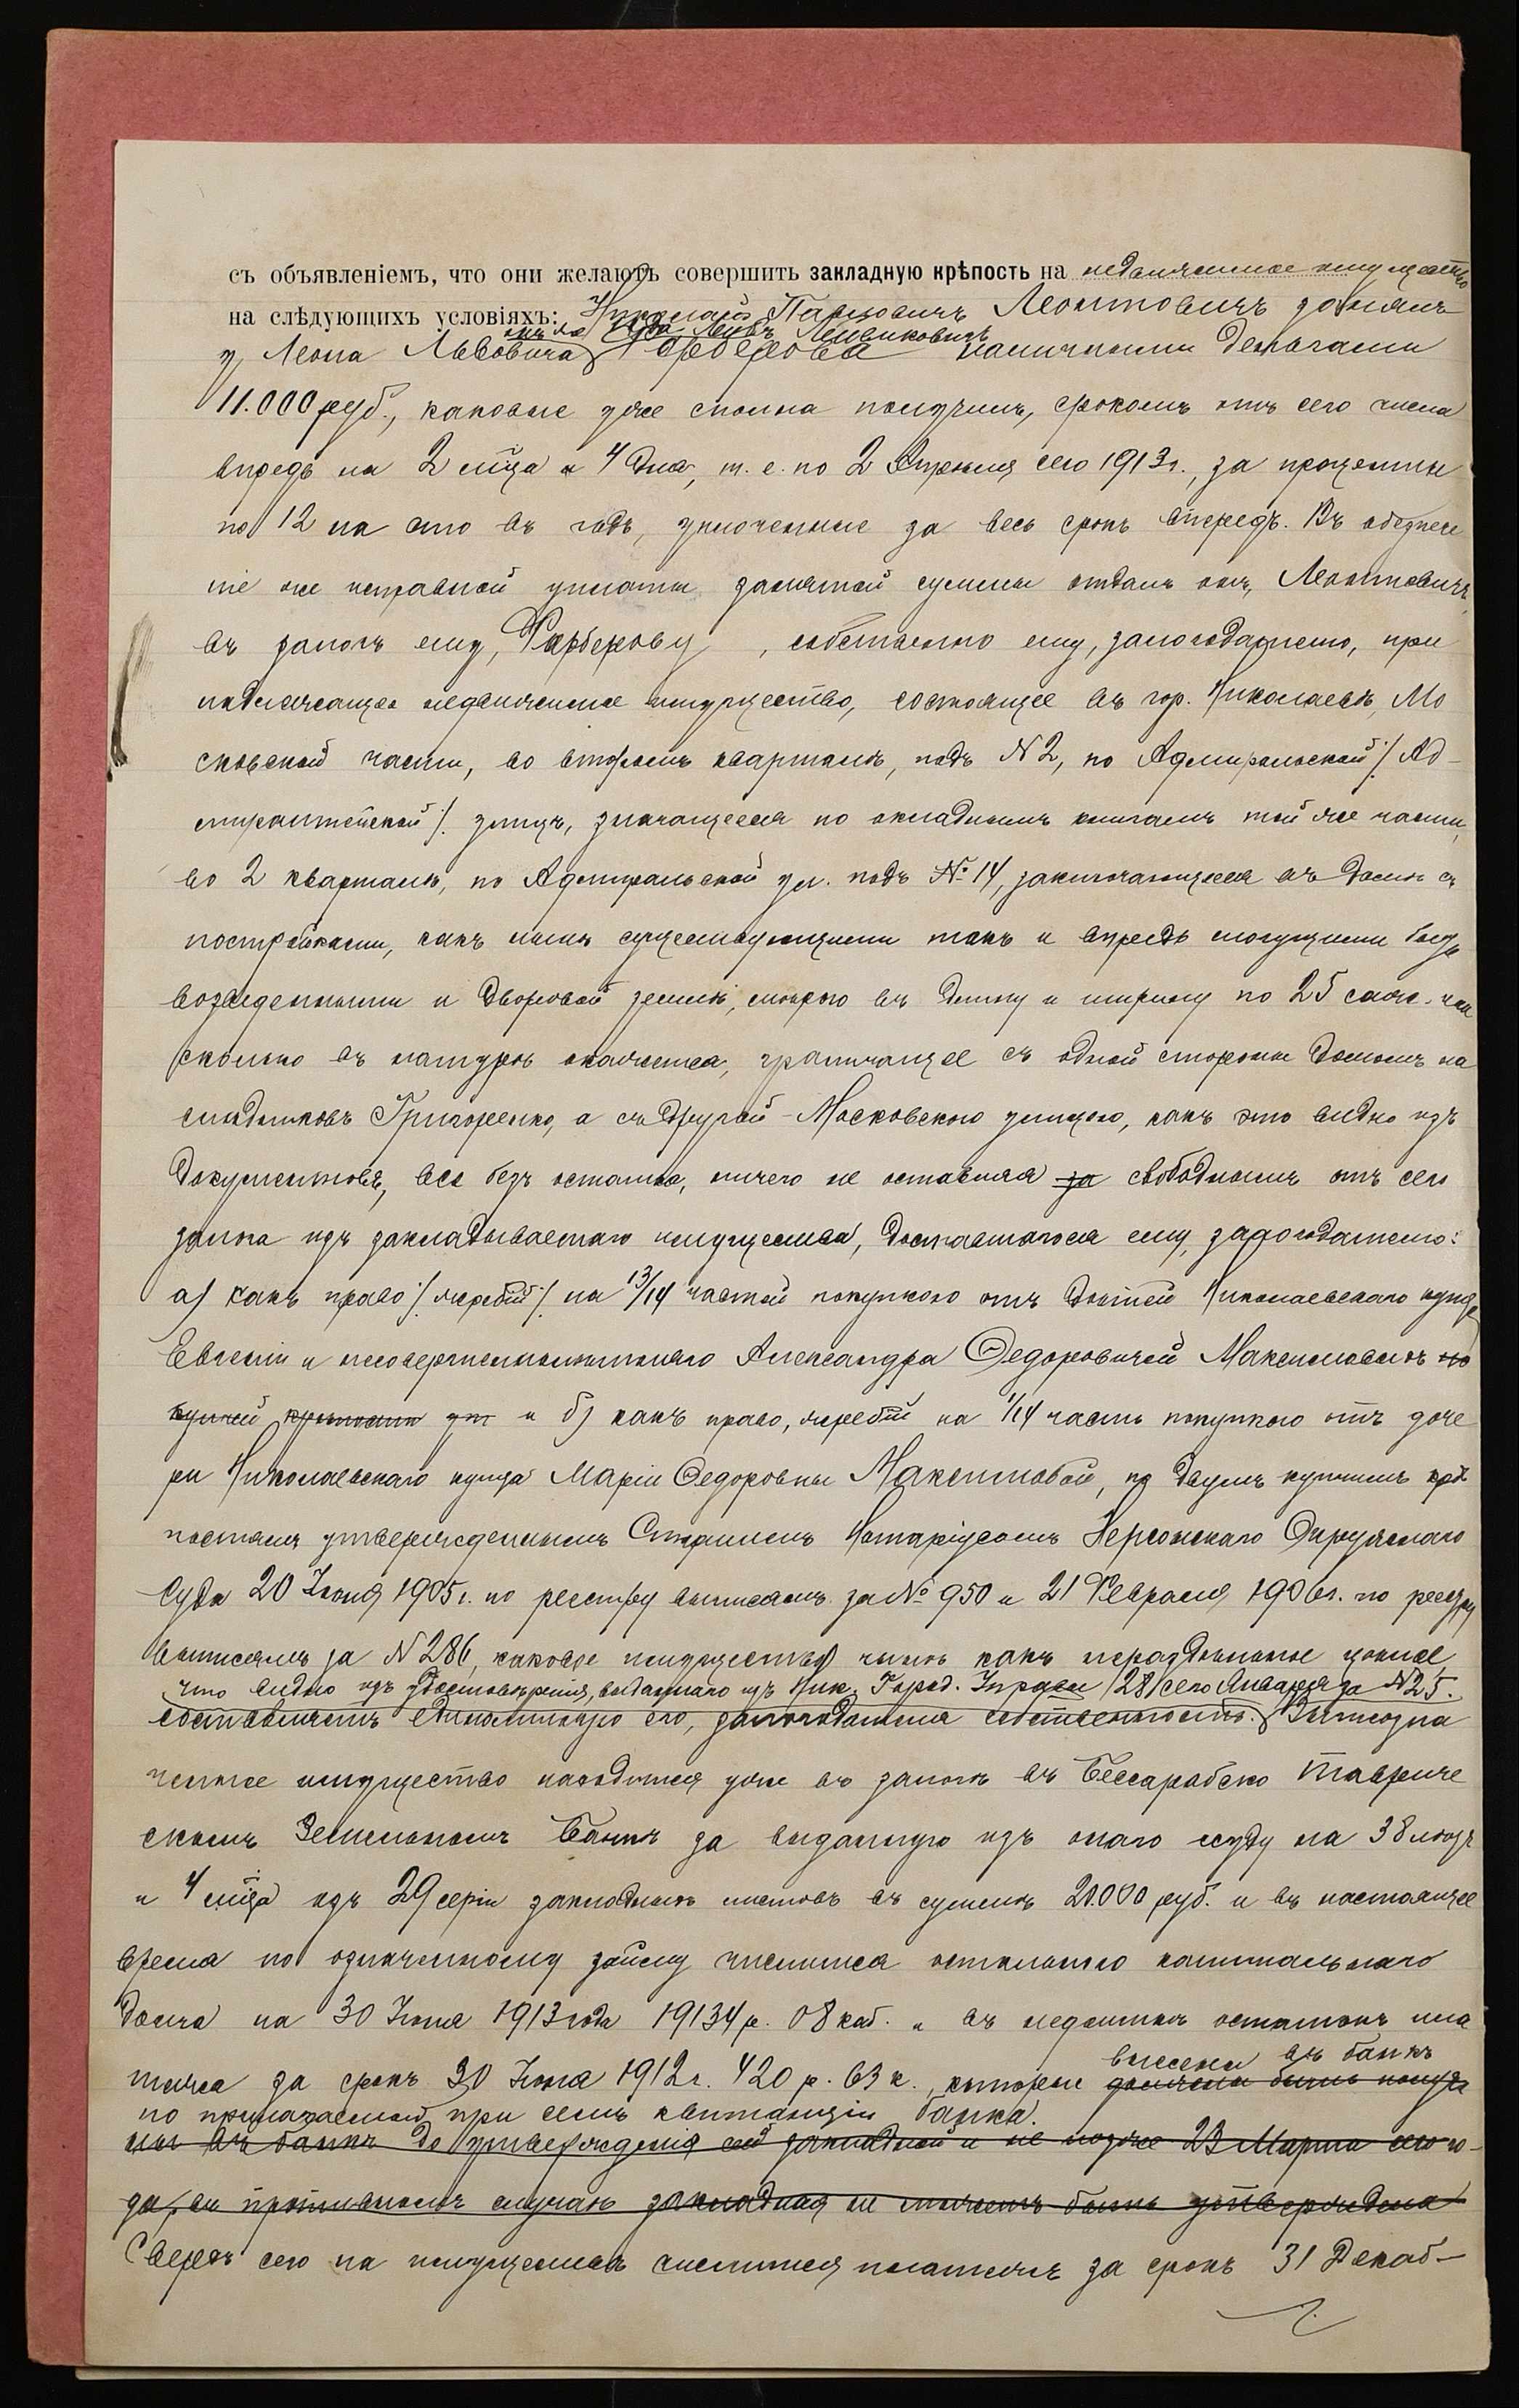 съ объявленіемъ, что они желаютъ совершить закладную крѣпость на недвижимое имущество
на слѣдующихъ условіяхъ: Николай Павловичъ Леонтовичъ занялъ
онъ же Левъ Лейвиковичъ
у Леона Львовича Фарберова наличными деньгами
11.000 руб., каковые уже сполна получилъ, срокомъ отъ сего числа
впредь на 2 мѣца и 4 дня, т. е. по 2 Апрѣля сего 1913 г., за проценты
по 12 на сто въ годъ, уплоченные за весь срокъ впередъ. Въ обезпече
ніе же исправной уплаты занятой суммы отдалъ онъ, Леонтовичъ,
въ залогъ ему, Фарберову, собственно ему, залогодателю, при
надлежащее недвижимое имущество, состоящее въ гор. Николаевѣ, Мо
сковской части, во второмъ кварталѣ, подъ N 2, по Адмиральской /: Ад-
миралтейской :/ улицѣ, значащееся по окладнымъ книгамъ той же части,
во 2 кварталѣ, по Адмиральской ул. подъ № 14, заключающееся въ домѣ съ
постройками, какъ нынѣ существующими такъ и впредь могущими быть
возведенными и дворовой землѣ, мѣрою въ длину и ширину по 25 саж. или
сколько въ натурѣ окажется, граничащее съ одной стороны домомъ на
слѣдниковъ Григоренко, а съ другой - Московскою улицею, какъ это видно изъ
документовъ, все безъ остатка, ничего не оставляя за свободнымъ отъ сего
залога изъ закладываемаго имущества, доставшагося ему, залогодателю:
а) какъ право /: жребій :/ на 13/14 частей покупкою отъ дѣтей Николаевскаго купца
Евгеніи и несовершеннолѣтняго Александра Ѳедоровичей Максимовыхъ по
купчей крѣпости ут и б) какъ право, жребій на 1/14 часть покупкою отъ доче
ри Николаевскаго купца Маріи Ѳедоровны Максимовой, по двумъ купчимъ крѣ
постямъ утвержденнымъ Старшимъ Нотаріусомъ Херсонскаго Окружнаго
Суда 20 Іюня 1905 г. по реестру выписямъ за № 950 и 21 Февраля 1906 г. по реестру
выписямъ за N 286, каковое имущество нынѣ какъ нераздѣльное цѣлое
что видно изъ удостовѣренія, выданнаго изъ Ник. Город. Управы 28 сего Января за N 25.
составляетъ единоличную его, залогодателя собственность. Вышеозна
ченное имущество находится уже въ залогѣ въ Бессарабско Тавриче
скомъ Земельномъ Банкѣ за выданную изъ онаго ссуду на 38 лѣтъ
и 4 мѣца изъ 29 серіи закладныхъ листовъ въ суммѣ 20.000 руб. и въ настоящее
время по означенному займу числится остальнаго капитальнаго
долга на 30 Іюня 1913 года 19134 р. 08 коп. и въ недоимкѣ остатокъ пла
внесены въ банкъ
тежа за срокъ 30 Іюня 1912 г. 420 р. 63 к., которые должны быть внесе
по прилагаемой при семъ квитанціи банка.
ны въ банкъ до утвержденія сей закладной и не позже 23 Марта сего го-
да, въ противномъ случаѣ закладная не можетъ быть утверждена
Сверхъ сего на имуществѣ числится платежъ за срокъ 31 Декаб-